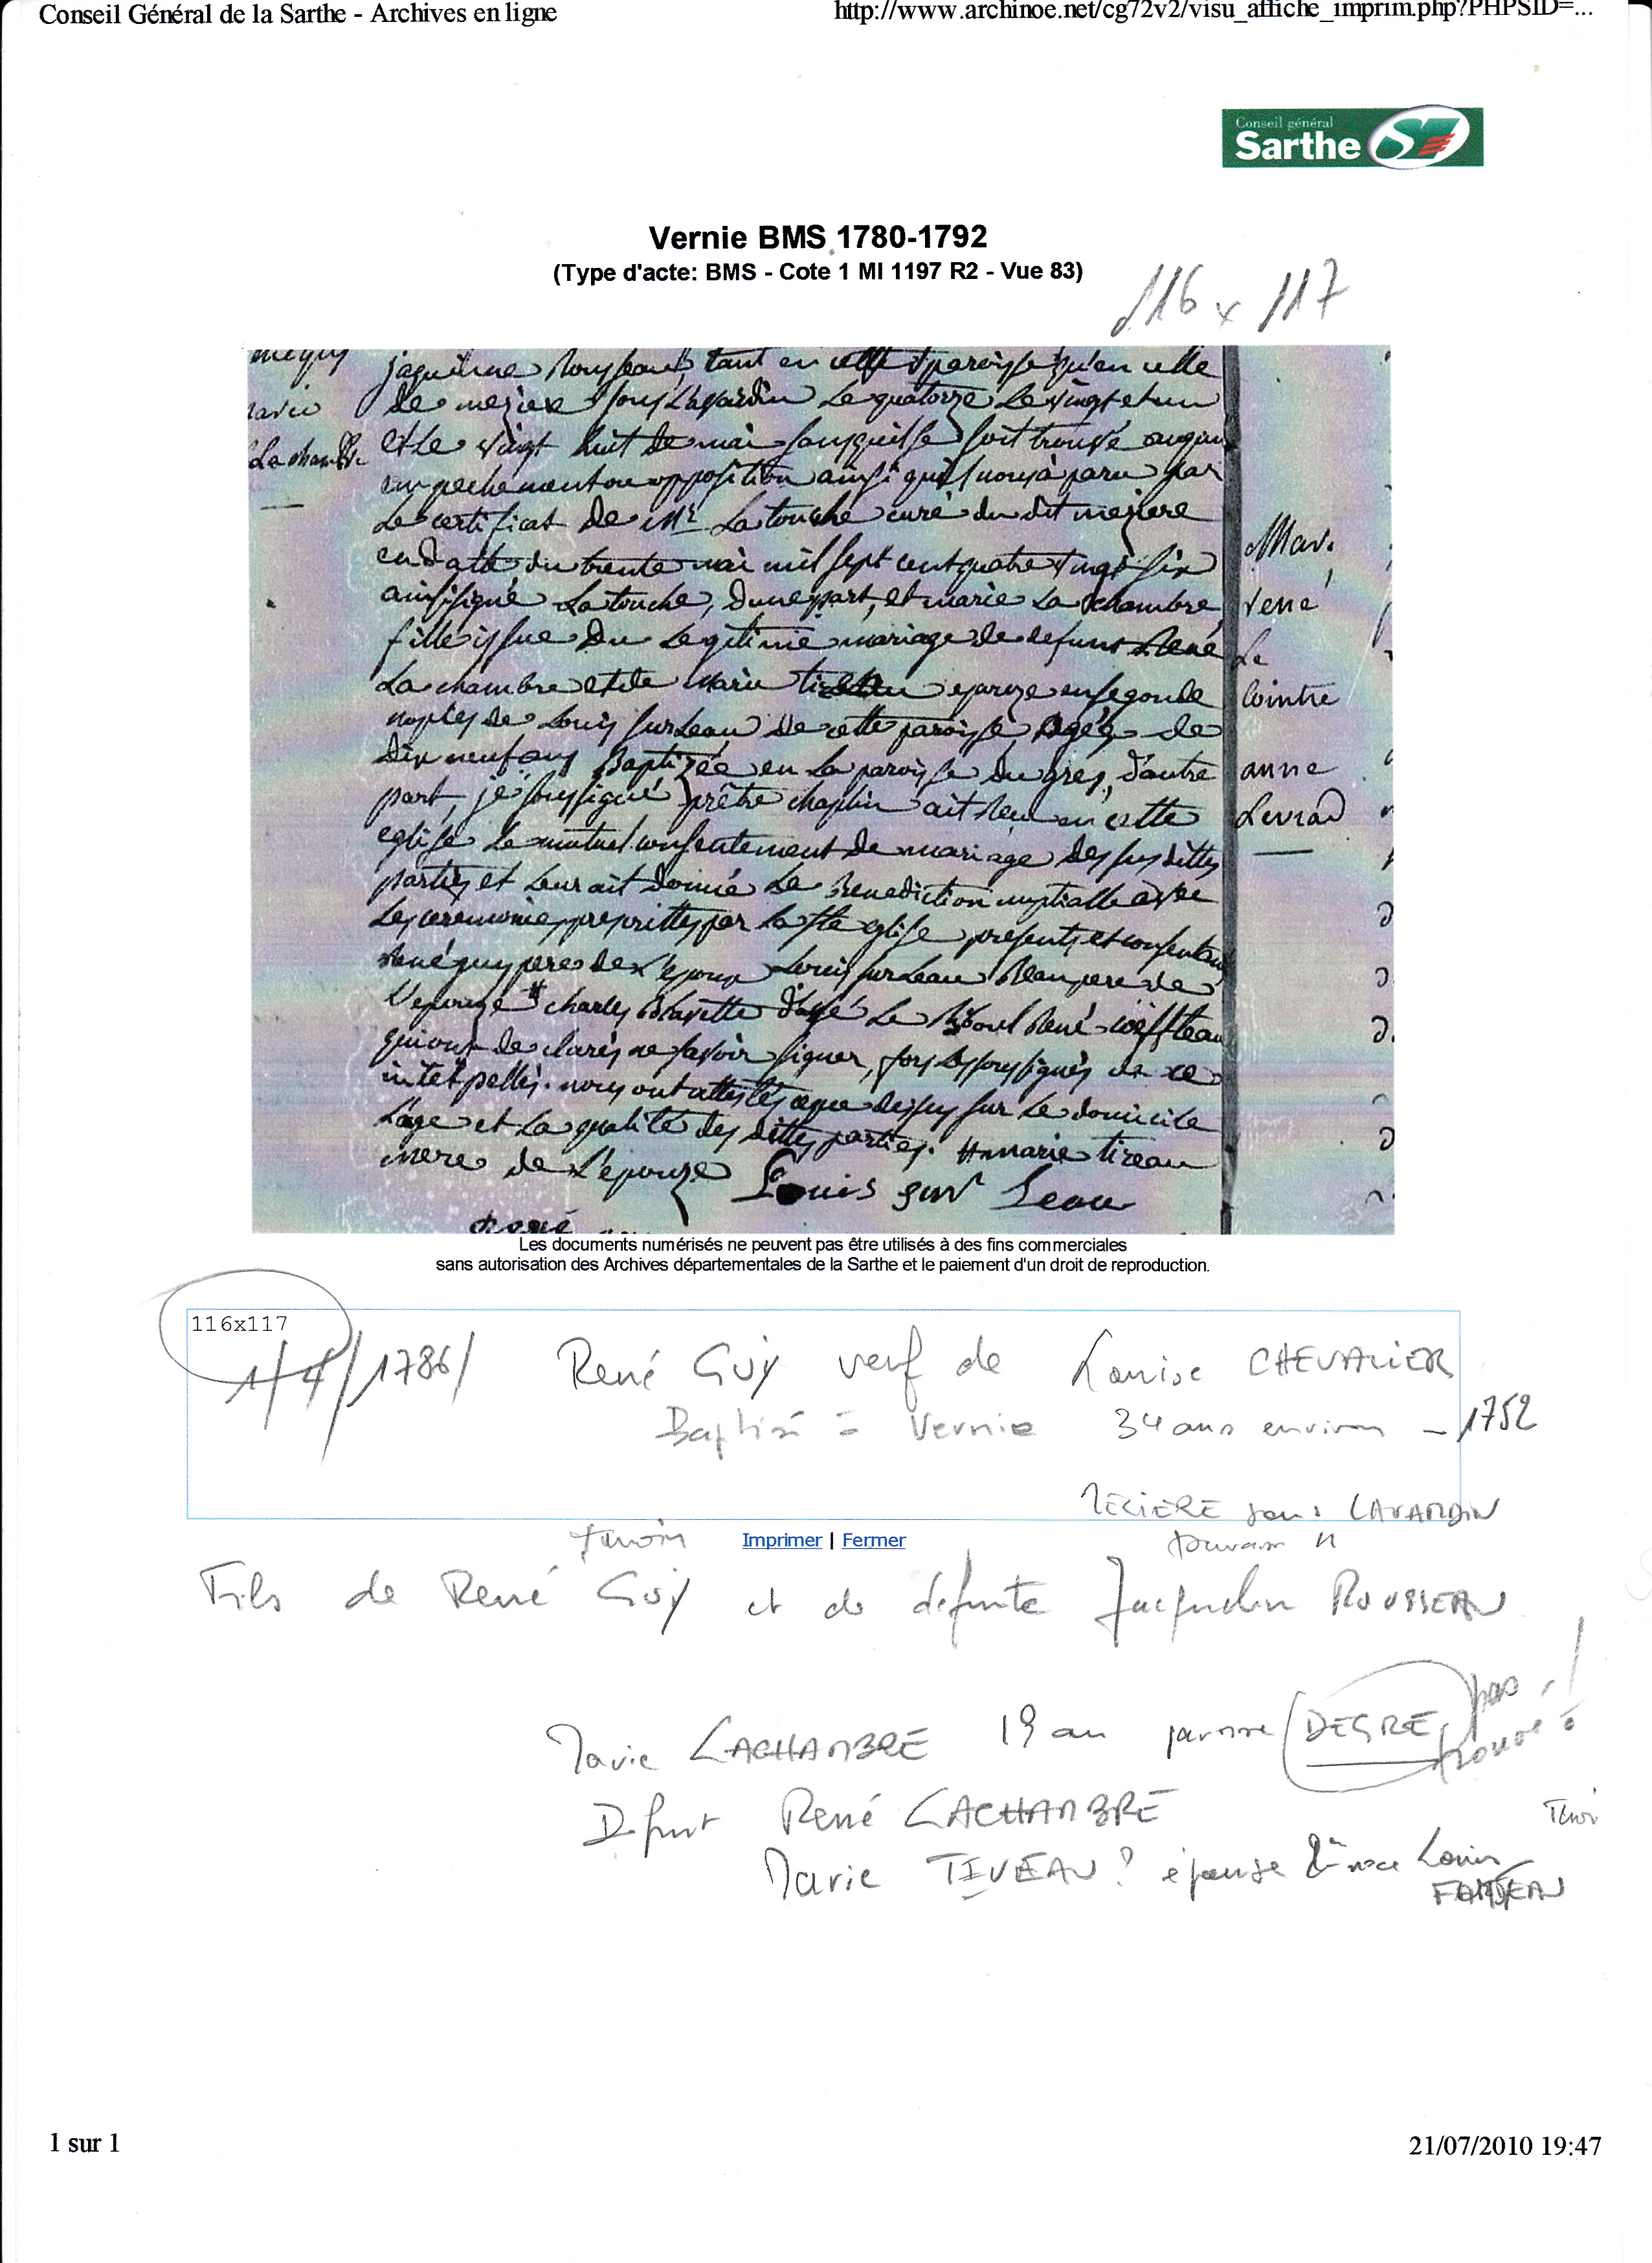 Conseil Général de la Sarthe - Archives en ligne
http://www.archinoe.net/cg72v2/visu_affiche_imprim.php?PHPSID=...
Conseil général
Sarthe
Vernie BMS 1780-1792
(Type d'acte: BMS - Cote 1 MI 1197 R2 - Vue 83)
116 x 117
jaquine Rousseau tant en cette paroisse qu'en celle
de mezier sous Lavardin Le quatorze Le vingt et un
et Le vingt huit de mai sans qu'il se soit trouvé auqun
empechement ou opposition ainsi quil nous à paru par
Le certificat de Mr La touche curé du dit meziere
en datte du trente mai mil sept cent quatre vingt six
ainsi signé La touche, d'une part, et marie La chambre
fille issue Du Legitime mariage de defunt René
La chambre et de marie epouze en segonde
noples de Louis surLeau de cette paroisse agée de
Dix neuf ans Baptizée en La paroisse Du gres, d'autre
part, je soussigné prêtre chaplin ait Reu en cette
eglise Le mutuel consentement de mariage des sus dittes
parties et Leur ait donné La Benediction nuptialle avec
Les ceremonies prescrittes par la ste eglise presents et consentans
René guy pere de L'epoux Louis surLeau Beaupere de
L'epouze # charles d'azé Le René
qui ont declarés ne savoir signer, fors Les soussignés de ce
interpellés. nous ont attestés ce que dessus sur Le domicile
L'age et La qualité des dittes parties. # marie tireau
mere de L'epouze Louis sur Leau
marie
La chambre
Mar.
rené
Le
Cointre
anne
Levrad
Les documents numérisés ne peuvent pas être utilisés à des fins commerciales
sans autorisation des Archives départementales de la Sarthe et le paiement d'un droit de reproduction.
116x117
1/4/1786/ René GUY veuf de Louise CHEVALIER
Baptisé à Vernie 34 ans environ - 1752
MEZIERE sous LAVARDIN
témoin
Imprimer | Fermer
Fils de René GUY et de defunte Jacqueline ROUSSEAU
Marie LACHAMBRE 19 an paroisse DEGRE pas trouvé à !
Defunt René LACHAMBRE
Marie TIVEAU? épouse 2e noce Louis
1 sur 1
21/07/2010 19:47